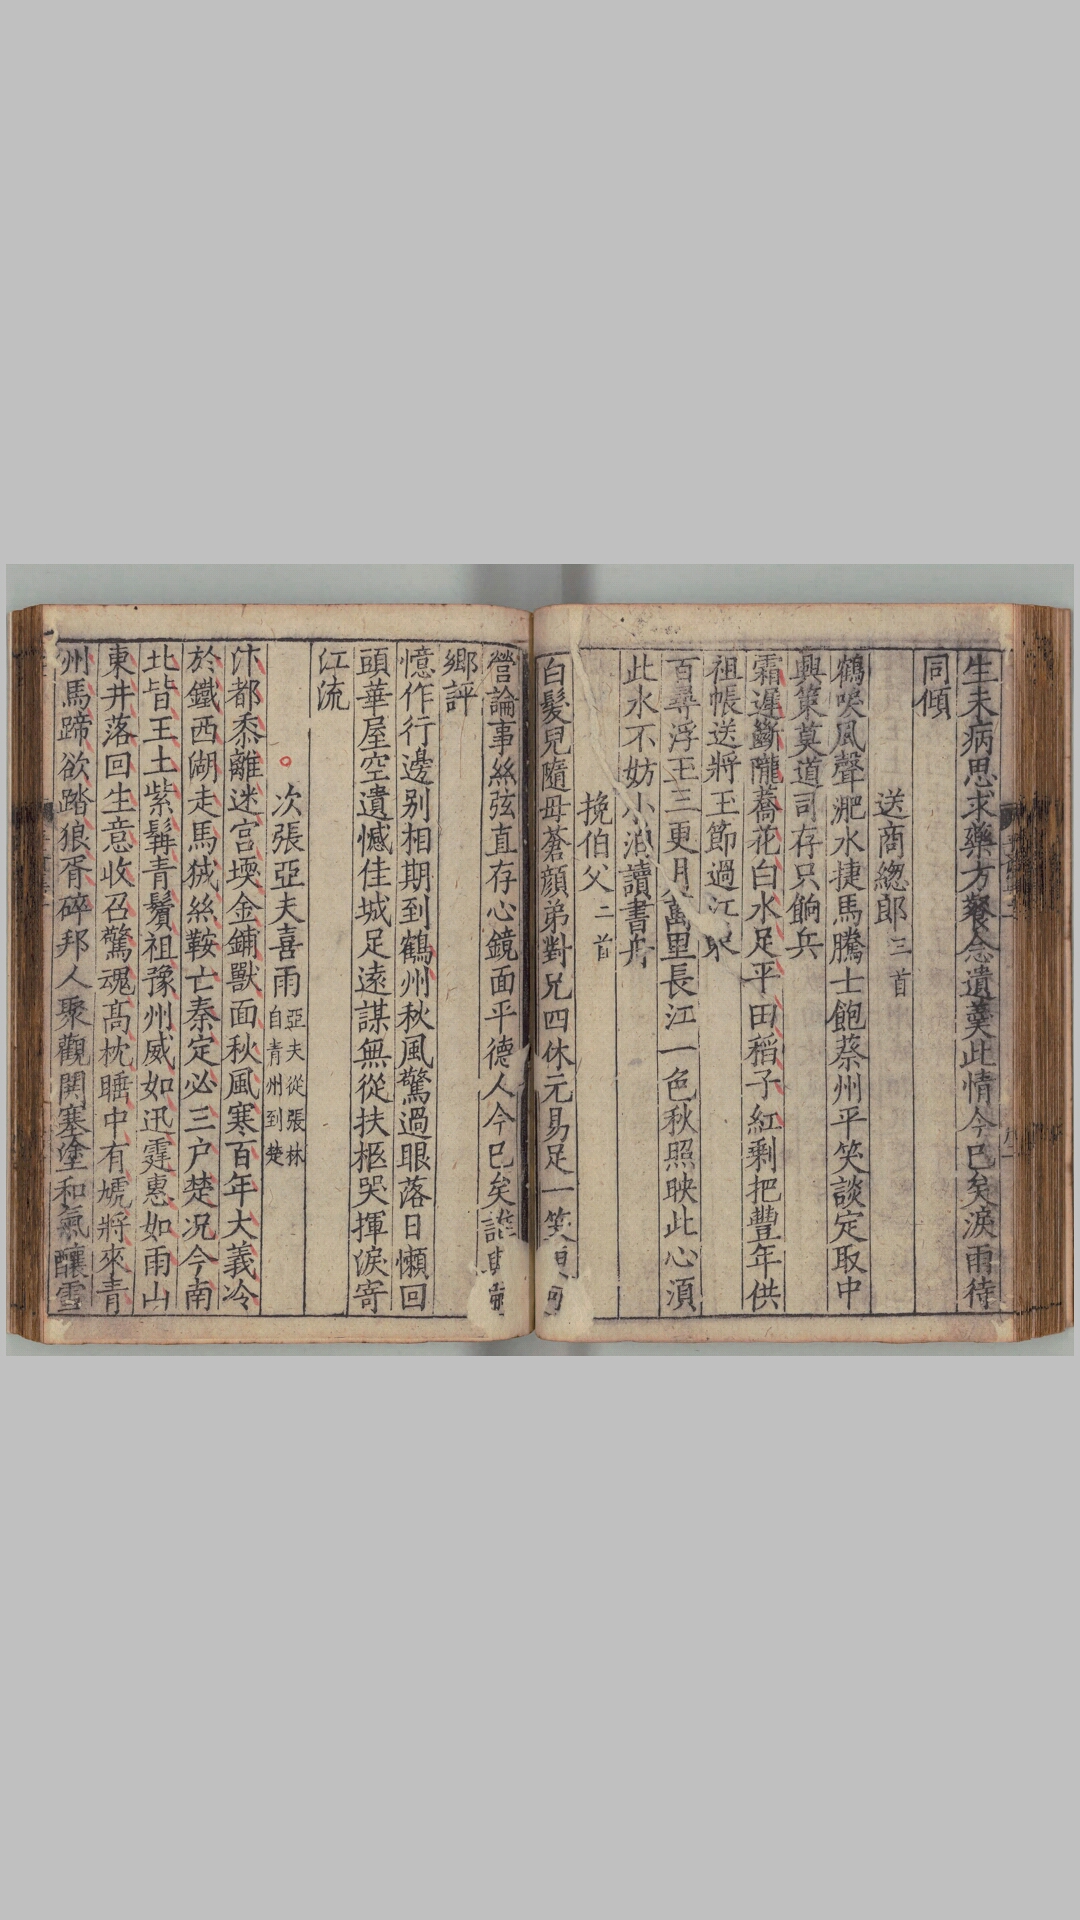 生未病思求藥方餐念遺羮此情今已矣淚雨待
同傾
送商總郎三首
鶴唳風聲淝水捷馬騰士飽蔡州平笑談定取中
興策莫道司存只餉兵
霜遲斷隴蕎花白水足平田稻子紅剩把豐年供
祖帳送將玉節過江
百尋浮玉三更月萬里長江一色秋照映此心須
此水不妨小泊讀書舟
挽伯父二首
白髮兒隨母蒼顔弟對兄四休元易足一笑
營論事絲弦直存心鏡面平德人今已矣
鄉評
憶作行邊别相期到鶴州秋風驚過眼落日懶回
頭華屋空遺憾佳城足遠謀無從扶柩哭揮淚寄
江流
次張亞夫喜雨亞夫從張林自青州到楚
汴都黍離迷宫堧金鋪獸面秋風寒百年大義冷
於鐵西湖走馬絨絲鞍亡秦定必三户楚况今南
北皆王土紫髯青鬢祖豫州威如迅霆惠如雨山
東井落回生意收召驚魂髙枕睡中有虓將來青
州馬蹄欲踏狼胥碎邦人聚觀闐塞塗和氣釀雪